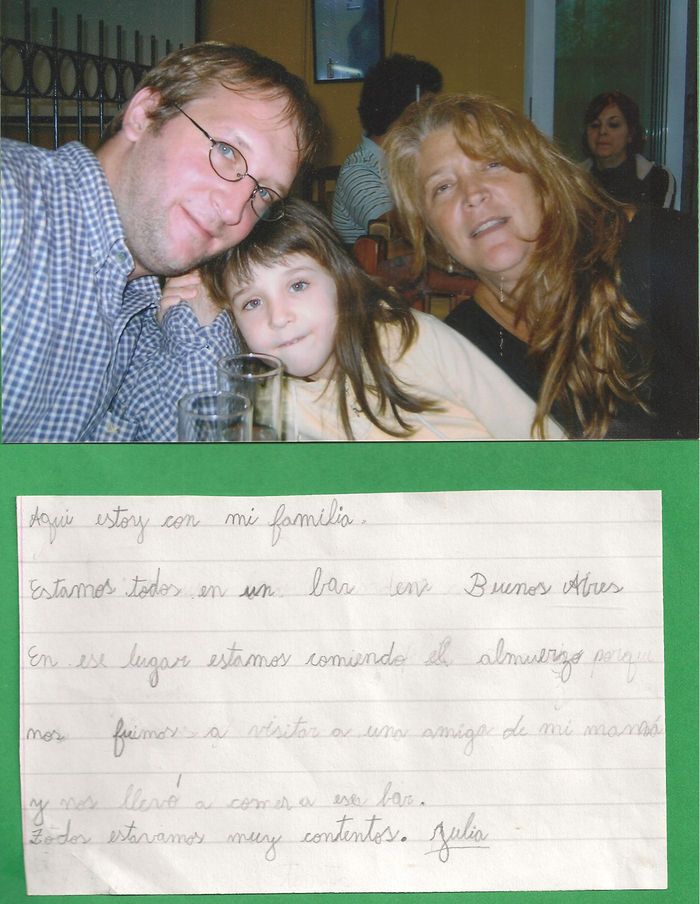 Aqui estoy con mi familia.
Estamos todos en un bar en Buenos Aires
En ese lugar estamos comiendo el almuerzo porqui
nos fuimos a visitar a una amiga de mi mamá
y nos llevó a comer a ese bar.
Todos estavamos muy contentos. Julia